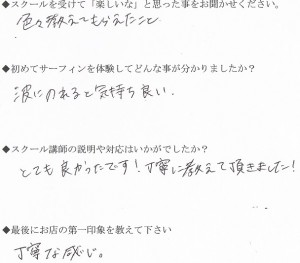 ◆スクールを受けて「楽しいな」と思った事をお聞かせください。
色々教えてもらえたこと
◆初めてサーフィンを体験してどんな事が分かりましたか？
波にのれると気持ち良い.
◆スクール講師の説明や対応はいかがでしたか？
とても良かったです！丁寧に教えて頂きました！
◆最後にお店の第一印象を教えて下さい
丁寧な感じ。